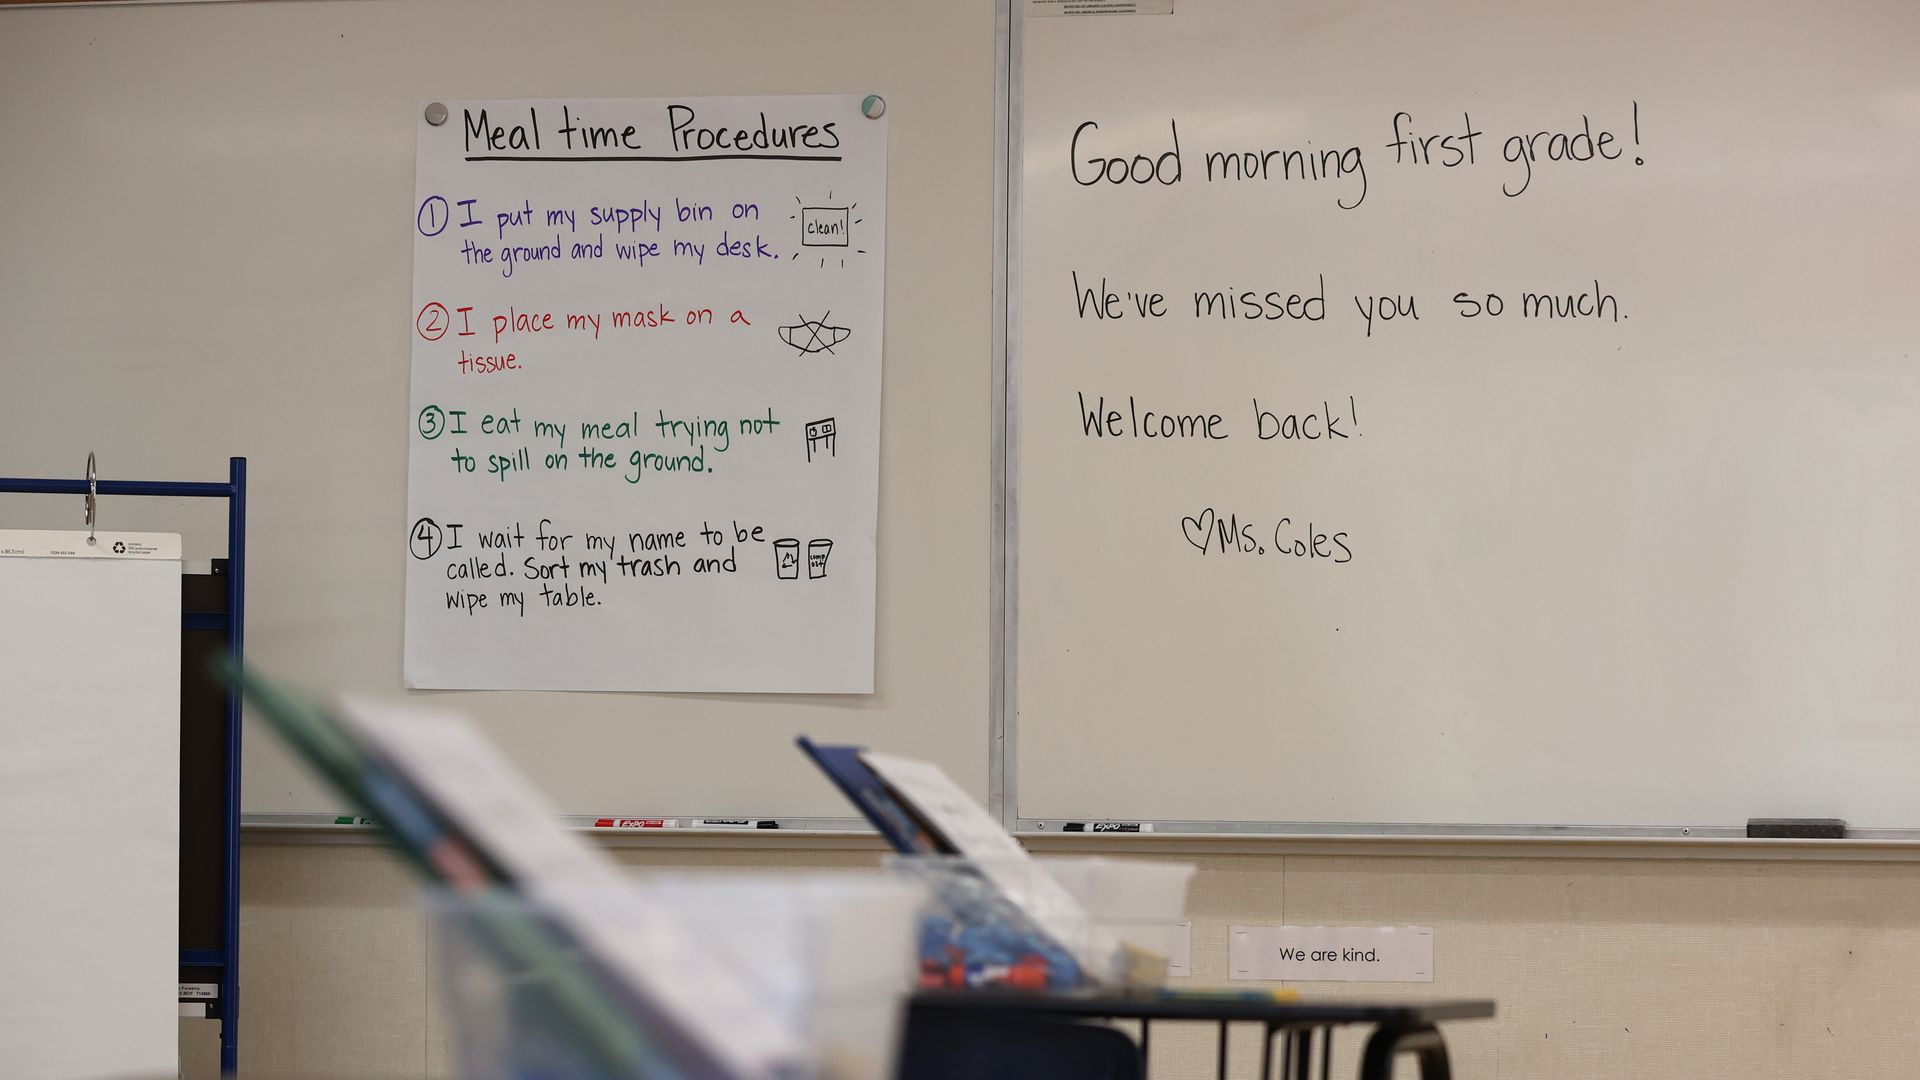 Meal time Procedures
① I put my supply bin on
the ground and wipe my desk.
clean!
② I place my mask on a
tissue.
③ I eat my meal trying not
to spill on the ground.
④ I wait for my name to be
called. Sort my trash and
wipe my table.
comp
ost
Good morning first grade!
We've missed you so much.
Welcome back!
♡Ms. Coles
EXPO
EXPO
We are kind.